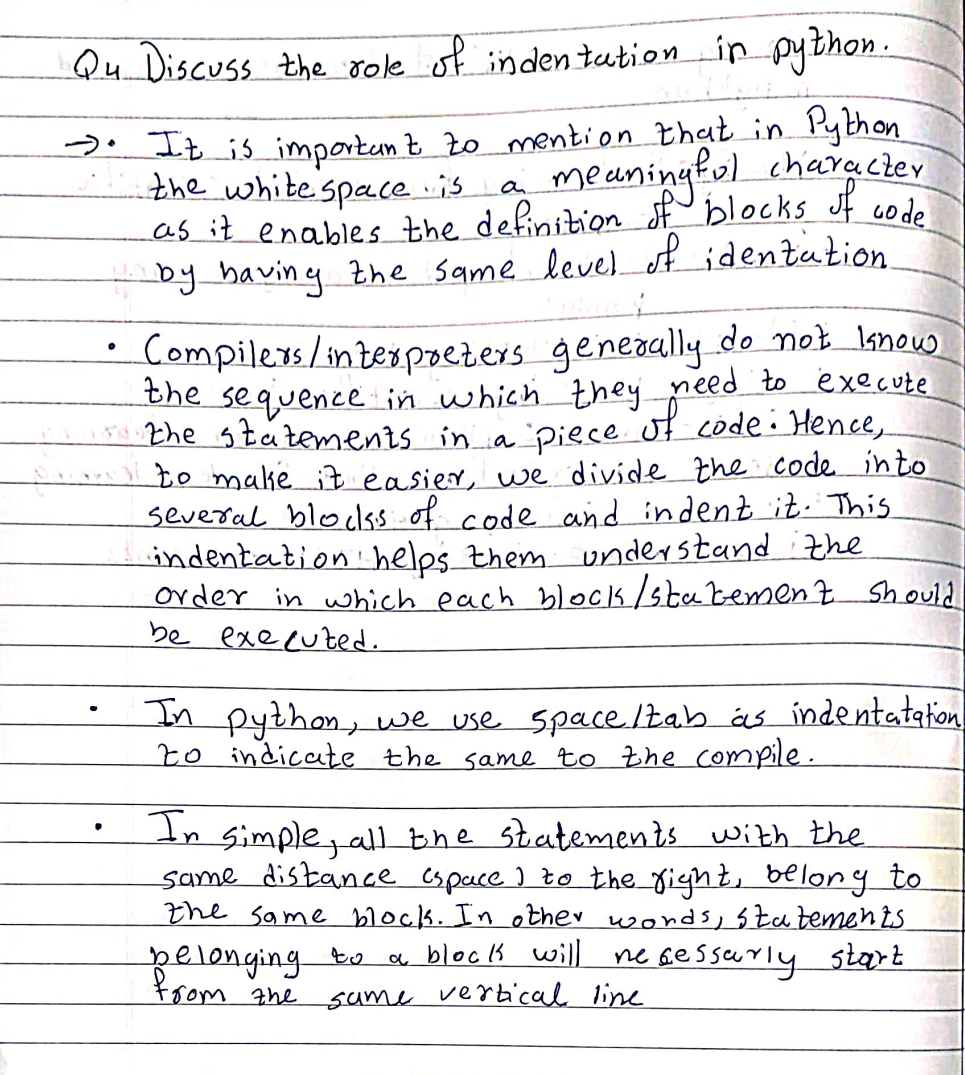 Q4 Discuss the role of indentation in python.
→• It is important to mention that in Python
the whitespace is a meaningful character
as it enables the definition of blocks of code
by having the same level of identation
• Compilers/interpreters generally do not know
the sequence in which they need to execute
the statements in a piece of code. Hence,
to make it easier, we divide the code into
several blocks of code and indent it. This
indentation helps them understand the
order in which each block/statement should
be executed.
• In python, we use space/tab as indentatation
to indicate the same to the compile.
• In simple, all the statements with the
same distance (space) to the right, belong to
the same block. In other words, statements
belonging to a block will necessarly start
from the same vertical line